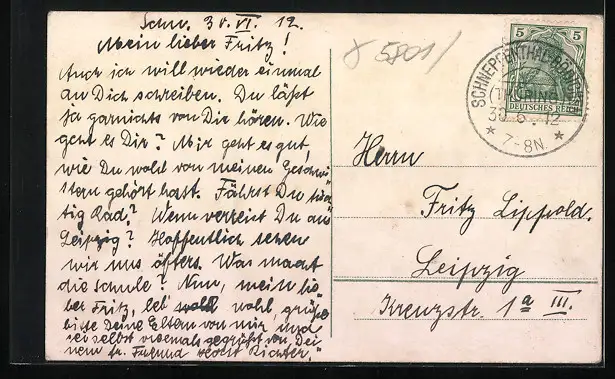 Schn. 30. VI. 12.
Mein lieber Fritz!
Auch ich will wieder einmal
an Dich schreiben. Du läßt
ja garnichts von Dir hören. Wie
geht es Dir? Mir geht es gut,
wie Du wohl von meinen Geschwi-
stern gehört hast. Fährst Du tüch-
tig Rad? Wenn verreist Du aus
Leipzig? Hoffentlich sehen
wir uns öfters. Was macht
die Schule? Nun, mein lie-
ber Fritz, leb wohl, grüße
bitte Deine Eltern von mir und
sei selbst vielmals gegrüßt von Dei-
nem tr. Freund Horst Richter.
5801/
5 5
DEUTSCHES REICH
SCHNEPFENTHAL-RÖDICHEN
(THÜRING.)
30.6.12
* 7-8N. *
Herrn
Fritz Lippold.
Leipzig
Kreuzstr. 1a III.